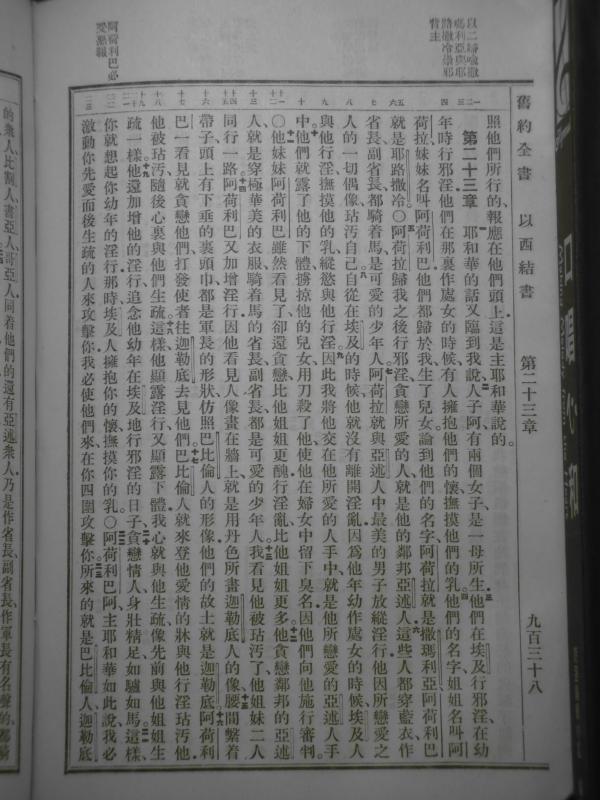 舊約全書 以西結書 第二十三章 九百三十八
以二婦喻撒
瑪利亞與耶
路撒冷離邪
背主
阿荷利巴必
受懲報
照他們所行的報應在他們頭上這是主耶和華說的。
第二十三章 耶和華的話又臨到我說人子阿有兩個女子是一母所生他們在埃及行邪淫在幼
年時行邪淫他們在那裏作處女的時候有人擁抱他們的懷撫摸他們的乳他們的名字姐姐名叫阿
荷拉妹妹名叫阿荷利巴他們都歸於我生了兒女論到他們的名字阿荷拉就是撒瑪利亞阿荷利巴
就是耶路撒冷〇阿荷拉歸我之後行邪淫貪戀所愛的人就是他的鄰邦亞述人這些人都穿藍衣作
省長副省長都騎着馬是可愛的少年人阿荷拉就與亞述人中最美的男子放縱淫行他因所戀愛之
人的一切偶像玷污自己自從在埃及的時候他就沒有離開淫亂因爲他年幼作處女的時候埃及人
與他行淫撫摸他的乳縱慾與他行淫因此我將他交在他所愛的人手中就是他所戀愛的亞述人手
中他們就露了他的下體擄掠他的兒女用刀殺了他使他在婦女中留下臭名因他們向他施行審判。
〇他妹妹阿荷利巴雖然看見了卻還貪戀比他姐姐更醜行淫亂比他姐姐更多他貪戀鄰邦的亞述
人就是穿極華美的衣服騎着馬的省長副省長都是可愛的少年人我看見他被玷污了他姐妹二人
同行一路阿荷利巴又加增淫行因他看見人像畫在牆上就是用丹色所畫迦勒底人的像腰間繫着
帶子頭上有下垂的裹頭巾都是軍長的形狀仿照巴比倫人的形像他們的故土就是迦勒底阿荷利
巴一看見就貪戀他們打發使者往迦勒底去見他們巴比倫人就來登他愛情的牀與他行淫玷污他
他被玷污隨後心裏與他們生疏這樣他顯露淫行又顯露下體我心就與他生疏像先前與他姐姐生
疏一樣他還加增他的淫行追念他幼年在埃及地行邪淫的日子貪戀情人身壯精足如驢如馬這樣
你就想起你幼年的淫行那時埃及人擁抱你的懷撫摸你的乳〇阿荷利巴阿主耶和華如此說我必
激動你先愛而後生疏的人來攻擊你我必使他們來在你四圍攻擊你所來的就是巴比倫人迦勒底
的衆人比割人書亞人哥亞人同着他們的還有亞述衆人乃是作省長副省長作軍長有名聲的都騎